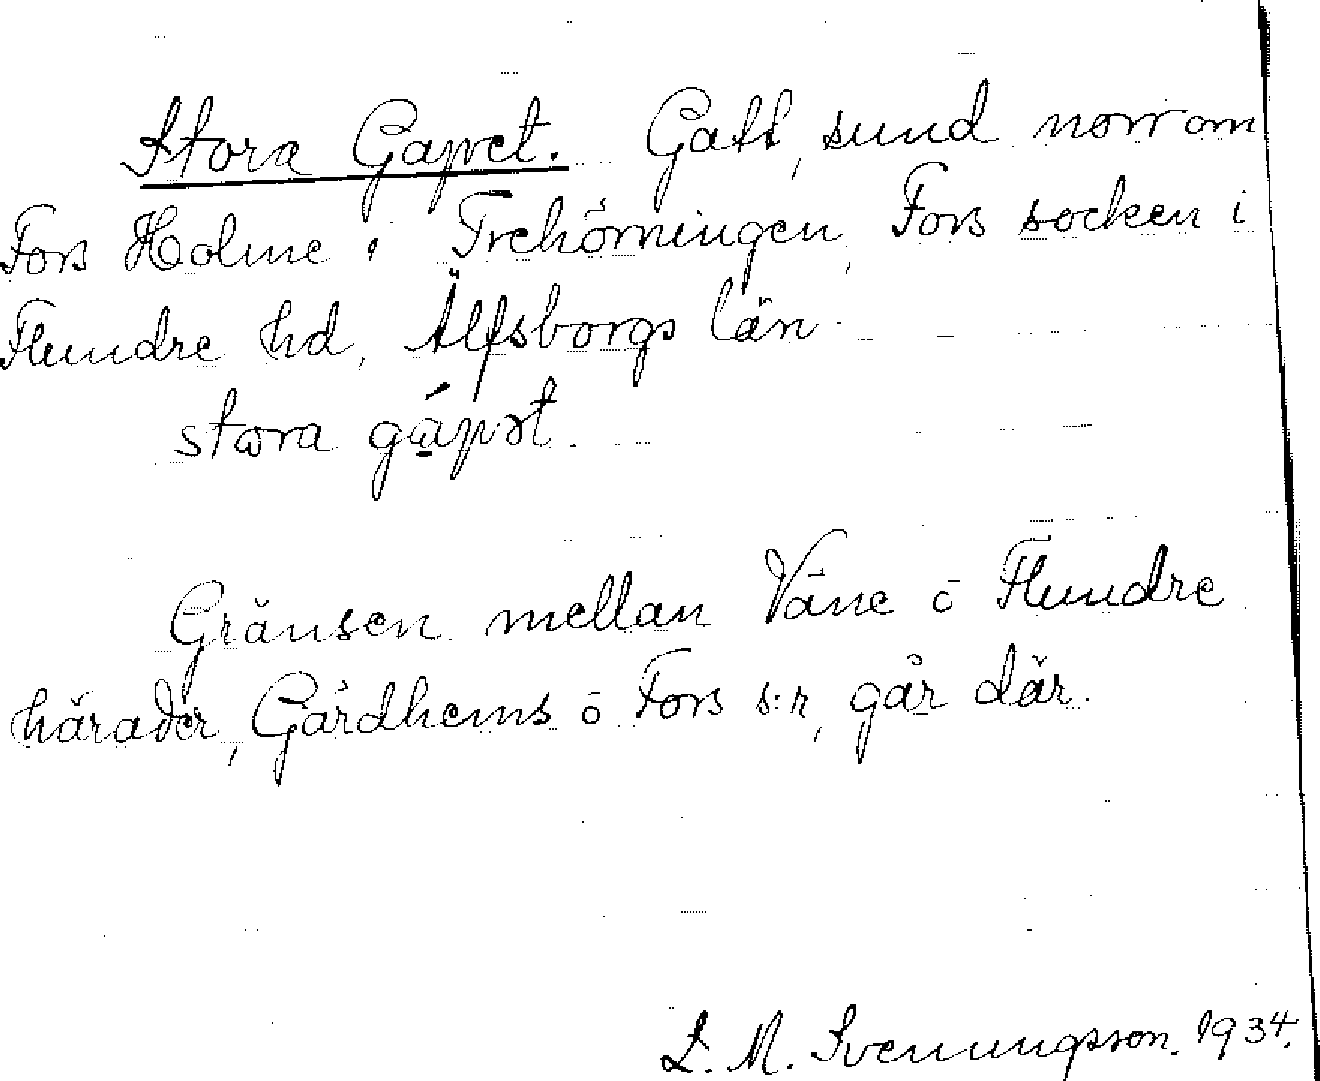 Stora Gapet. Gatt, sund norr om
Fors Holme i Trehörningen, Fors socken i
Flundre hd, Älfsborgs län.
stora gápət.
Gränsen mellan Väne ō Flundre
härader, Gärdhems ō Fors s:r, går där.
L. M. Svenungsson. 1934.